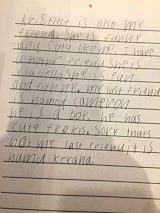 kristine is also my
friend. She is funny
and Cury like me. I have
a nother friend she is
isabell she is fun
and funny. my last friend
is named cameron
he is a boy. he has
cute frekls. Sory thats
not my last friend it is
namd kerana.